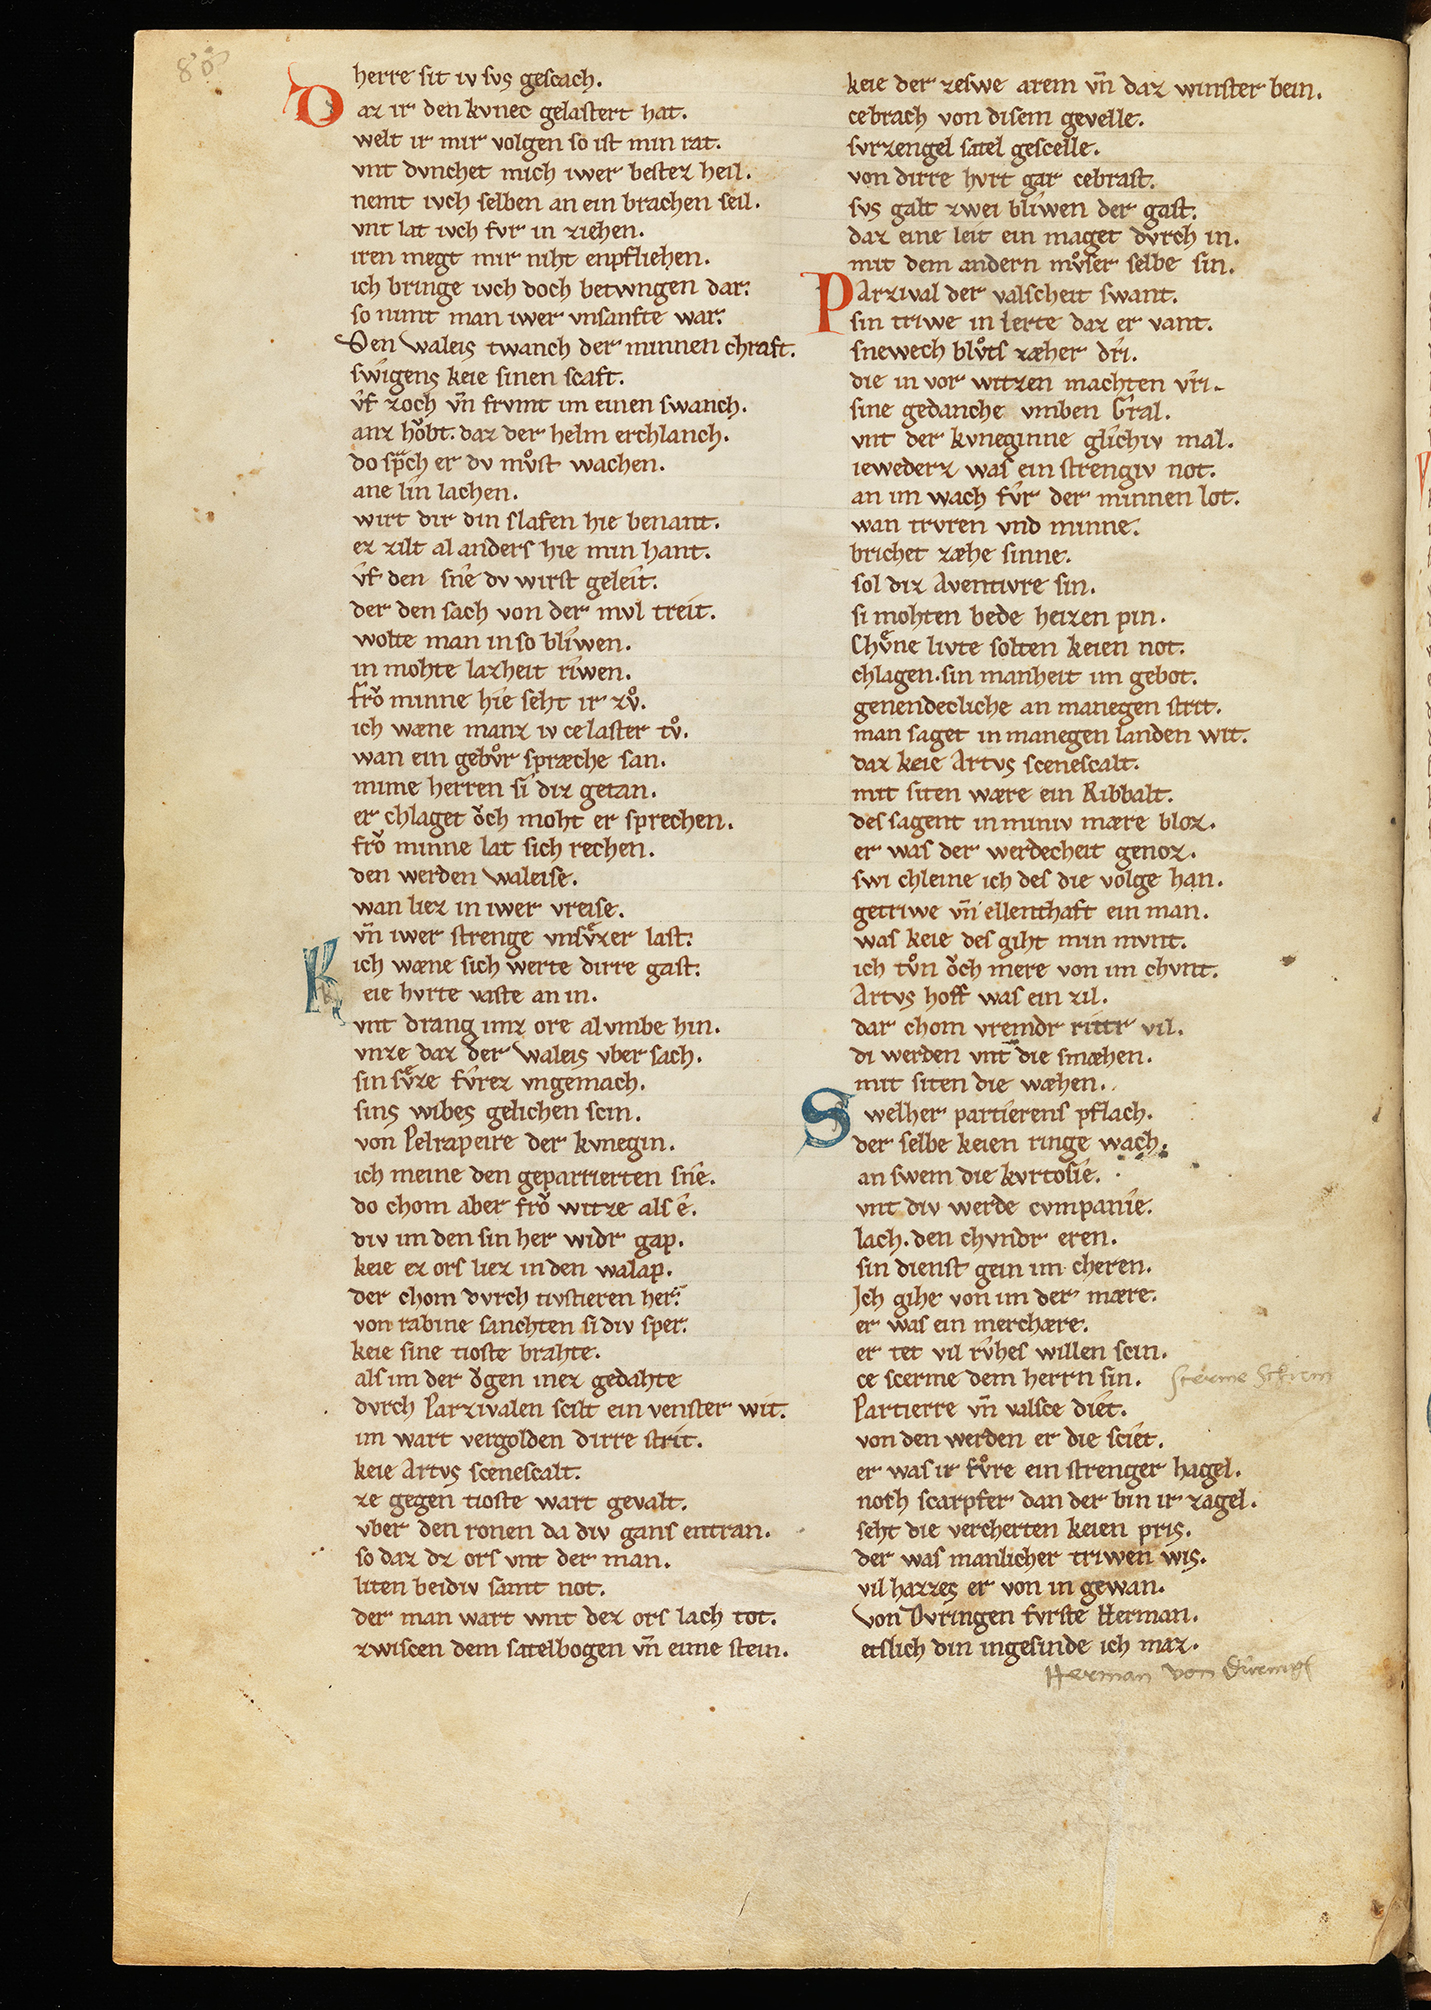 80
herre sit iv svs gescach.
Daz ir den kvnec gelastert hat.
welt ir mir volgen so ist min rat.
vnt dvnchet mich iwer bestez heil.
nemt ivch selben an ein brachen seil.
vnt lat ivch fvr in ziehen.
iren megt mir niht enpfliehen.
ich bringe ivch doch betwngen dar.
so nimt man iwer vnsanfte war.
Den Waleis twanch der minnen chraft.
swigens keie sinen scaft.
vf zoch vn̄ frvmt im einen swanch.
anz hoͮbt. daz der helm erchlanch.
do spͣch er dv mvͦst wachen.
ane lin lachen.
wirt dir din slafen hie benant.
ez zilt al anders hie min hant.
vf den sne dv wirst geleit.
der den sach von der mvl treit.
wolte man in so bliwen.
in mohte lazheit riwen.
froͮ minne hie seht ir zvͦ.
ich wæne manz iv ce laster tvͦ.
wan ein gebvͦr spræche san.
mime herren si diz getan.
er chlaget oͮch moht er sprechen.
froͮ minne lat sich rechen.
den werden Waleise.
wan liez in iwer vreise.
vn̄ iwer strenge vnsvͤzer last.
ich wæne sich werte dirre gast.
Keie hvrte vaste an in.
vnt drang imz ors alvmbe hin.
vnze daz der Waleis vber sach.
sin svͤze svrez vngemach.
sins wibes gelichen scin.
von Pelrapeire der kvnegin.
ich meine den gepartierten sne.
do chom aber froͮ witze als e.
div im den sin her widr gap.
keie ez ors liez in den walap.
der chom dvrch tivstieren her.
von rabine sanchten si div sper.
keie sine tioste brahte.
als im der oͮgen mez gedahte
dvrch Parzivalen scilt ein venster wit.
im wart vergolden dirre strit.
keie Artvs scenescalt.
ze gegen tioste wart gevalt.
vber den ronen da div gans entran.
so daz dz ors vnt der man.
liten beidiv samt not.
der man wart wnt dez ors lach tot.
zwiscen dem satelbogen vn̄ eime stein.
keie der zeswe arem vn̄ daz winster bein.
cebrach von disem gevelle.
svrzengel satel gescelle.
von dirre hvrt gar cebrast.
svs galt zwei bliwen der gast.
daz eine leit ein maget dvrch in.
mit dem andern mvͦser selbe sin.
Parzival der valscheit swant.
sin triwe in lerte daz er vant.
snewech blvͦts zæher dri.
die in vor witzen machten vri.
sine gedanche vmben Gral.
vnt der kvneginne glichiv mal.
iewederz was ein strengiv not.
an im wach fvr der minnen lot.
wan trvren vnd minne.
brichet zæhe sinne.
sol diz Aventivre sin.
si mohten bede heizen pin.
Chvͤne livte solten keien not.
chlagen. sin manheit im gebot.
genendecliche an manegen strit.
man saget in manegen landen wit.
daz keie Artvs scenescalt.
mit siten wære ein Ribbalt.
des sagent in miniv mære bloz.
er was der werdecheit genoz.
swi chleine ich des die volge han.
getriwe vn̄ ellenthaft ein man.
was keie des giht min mvnt.
ich tvͦn oͮch mere von im chvnt.
Artvs hoff was ein zil.
dar chom vremdr rittr vil.
di werden vnt die smæhen.
mit siten die wæhen.
Swelher partierens pflach.
der selbe keien ringe wach.
an swem die kvrtosie.
vnt div werde cvmpanie.
lach. den chvndr eren.
sin dienst gein im cheren.
Ich gihe von im der mære.
er was ein merchære.
er tet vil rvhes willen scin.
ce scerme dem herrn sin.
scerme Schirm
Partierre vn̄ valsce diet.
von den werden er die sciet.
er was ir fvͦre ein strenger hagel.
noch scarpfer dan der bin ir zagel.
seht die vercherten keien pris.
der was manlicher triwen wis.
vil hazzes er von in gewan.
Von Dvringen fvrste Herman.
etslich din ingesinde ich maz.
Herman von Düring